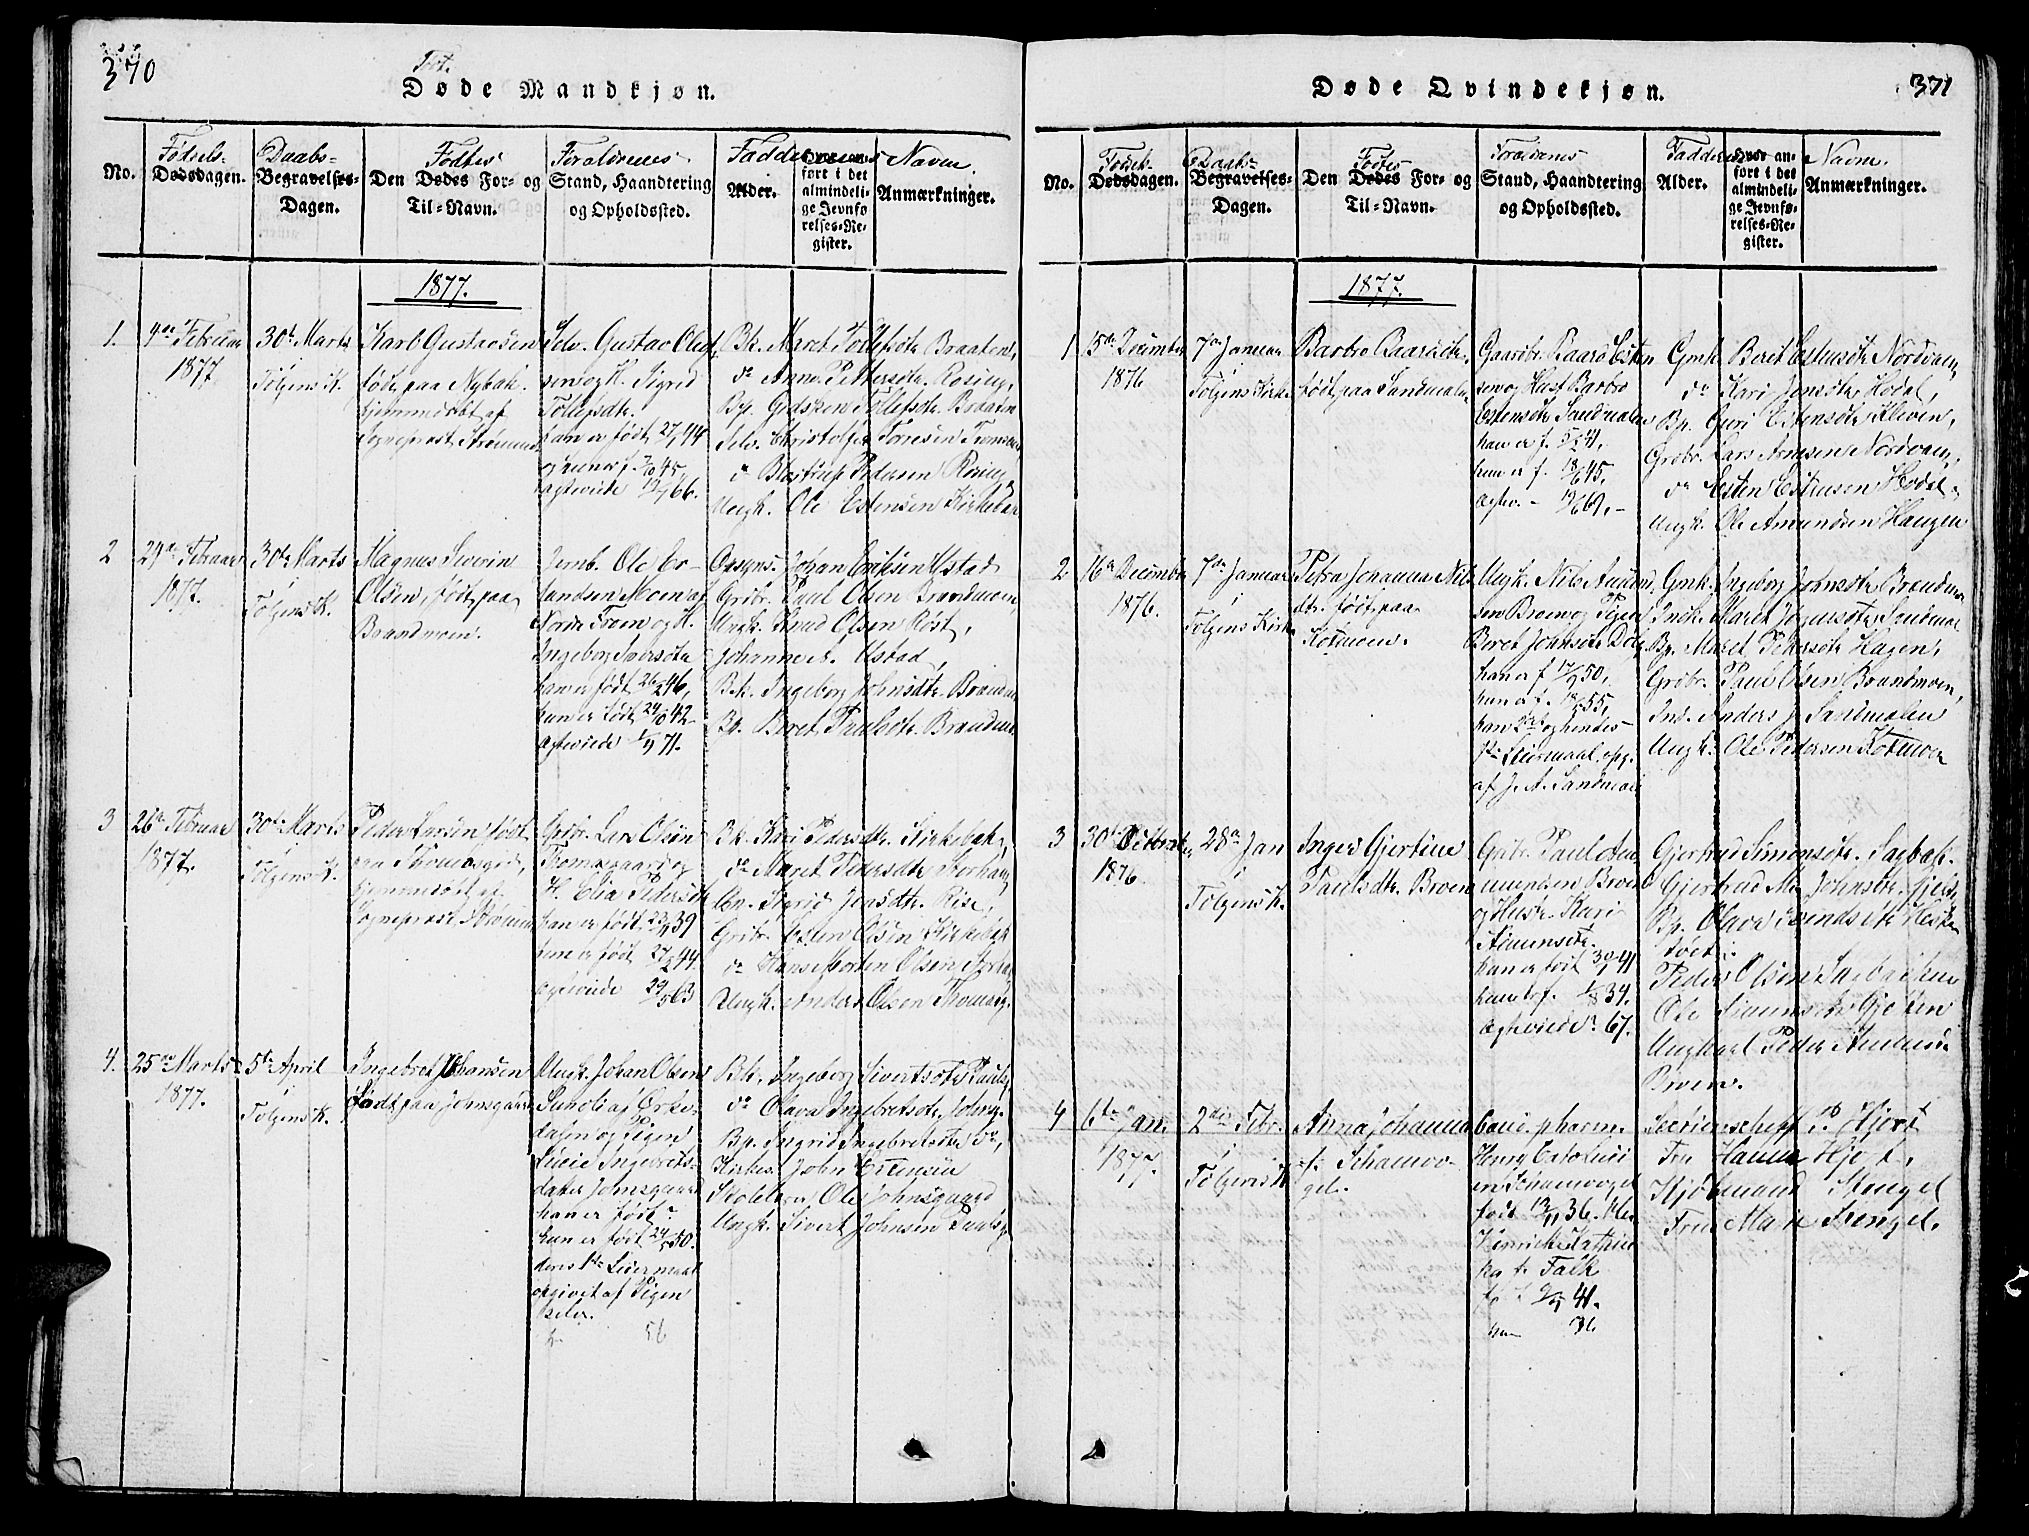 370
Føt.
Døde Mandkjøn.
No.
Fødsels-
Dødsdagen.
Daabs-
Begravelses-
Dagen.
Fødtes
Den Dødes For- og
Til-Navn.
Forældrenes
Stand, Haandtering
og Opholdssted.
Faddernes Navne.
Alder.
Hvor an-
ført i det
almindeli-
ge Jevnfø-
relses-Re-
gister.
Anmærkninger.
1877.
1.
4de Februar
1877
30te Marts
i
Tolgens K.
Karl Gustavsen
født paa Nybak.
hjemmedøbt af
Sogneprest Strømme
Selv. Gustav Olaf-
sen og H. Sigrid
Tollefsdtr.
han er født 27/1 44
og hun er f. 7/10 45,
ægteviede 66.
Bk. Maret Tollefsdtr. Braaten,
do Anne Pettersdtr. Rosing,
Bp. Gidsken Tollefsdtr. Braaten
Selv. Christofer Torresen
do Pedersen Rosing
Ungk. Ole Estensen Kirkebak
2
24de Februar
1877.
30te Marts
i
Tolgens K.
Magnus Severin
Olsen, født paa
Brandmoen.
Jernb. Ole
Moen af
Nordre Troen og H.
Ingeborg Iversdtr
han er født 26/2 46,
hun er født 24/10 42
ægteviede 1/9 71.
Johan Eriksen Ustad
Grdbr. Paul Olsen Brandmoen,
Ungk. Knud Olsen Røst,
Johanne A. Ustad,
Bk. Ingeborg Johnsdtr. Brandm.
Bp. Beret Paulsdtr. Brandm.
3
26de Februar
1877.
30te Marts
i
Tolgens K.
Peder Larsen, født
paa Thomasgrd,
hjemmedøbt af
Sogneprest Strømme
Grdbr. Lars Olsen
Thomasgaard og
H. Elia Pedersdtr
han er født 23/11 39
hun er født 27/2 44.
ægteviede 29/5 63
Bk. Kari Pedersdtr. Kirkebak,
do Maret Pedersdtr
Sigrid Jonsdtr. Rise,
Grdbr. Esten Olsen Kirkebak
do Hans Morten Olsen
Ungk. Anders Olsen Thomasg.
4.
25de Marts
1877.
5te April
i
Tolgens K.
Ingebret Johansen
født paa Johnsgaard
Ungk. Johan Olsen
af Orke-
dalen og Pigen
Ingebrets-
datter Johnsgaard
han er født "
hun er født 24/5 50.
deres 1ste Leiermaal
opgivet af Pigen
selv.
56
Bk. Ingeborg Sivertsdtr Paulsg.
do Olava Ingebretsdtr. Johnsg.
Bp. Ingrid Ingebretsdtr do,
Kirkes. John Estensen
Skolelærer Ole Johnsgaard
Ungk. Sivert Johnsen Paulsg.
371
Døde Qvindekjøn.
No.
Fødsels-
Dødsdagen.
Daabs-
Begravelses-
Dagen.
Fødtes
Den Dødes For- og
Til-Navn.
Forældrenes
Stand, Haandtering
og Opholdssted.
Faddernes Navne.
Alder.
Hvor an-
ført i det
almindeli-
ge Jevnfø-
relses-Re-
gister.
Anmærkninger.
1877.
1
5te December
1876
7de Januar
i
Tolgens Kirke
Barbro Baarsdtr.
født paa Sandmælen
Gaardbr. Baard Esten-
sen og Hust Barbro
Estensdtr Sandmælen
han er f. 5/2 41,
hun er f. 18/6 45.
ægtev. 69.
Gmk. Beret Estensdtr Nordvang
do Kari Jonsdtr Hodal,
Bp. Guri Estensdtr. Kleven,
Grdbr. Lars Arnesen Nordvang,
do Esten Estensen Hodal,
Ungk. Ole Amundsen Haugen
2
16de December
1876.
7de Januar
i
Tolgens Kirke
Petra Johanna Nils-
dtr. født paa
Kotmoen.
Ungk. Nils Amund-
sen Broen og Pigen
Beret Johnsdtr
han er f 50,
hun er f. 55,
han 2det og hendes
1ste Leiermaal, opg.
af J. A. Sandmæl
Gmk. Ingeborg Johnsdtr Brandmo
Inds. Maret Sandmæl
Bp. Maret Pedersdtr Hagen,
Grdbr. Paul Olsen Brandmoen,
Ind. Anders J. Sandmælen
Ungk. Ole Pedersen Kotmoen
3
30te October
1876
28de Jan
i
Tolgens K.
Inger Gjertine
Paulsdtr. Broen
Grdbr. Paul A-
mundsen Broen
og Hustr. Kari
Simensdtr.
han er født 30/1 41
hun er f. 1/8 39.
ægteviede 67.
Gjertrud Simonsdtr. Sagbak.
Gjertrud M. Johnsdtr.
Bp. Olava
Peder Olsen Sagbakken
Ole Simensen
Ungkarl Peder Amunds.
Broen.
4
6te Jan.
1877.
2den Febr.
i
Tolgens K
Anna Johanna
f. Schanvo-
gel.
Cand. pharm.
Henry
Schanvogel
født 36.
f. Falk
født 41.
36
P. Hjort
Fru Hanna Hjort,
Kjøbmand Stengel
Fru Marie Stengel.